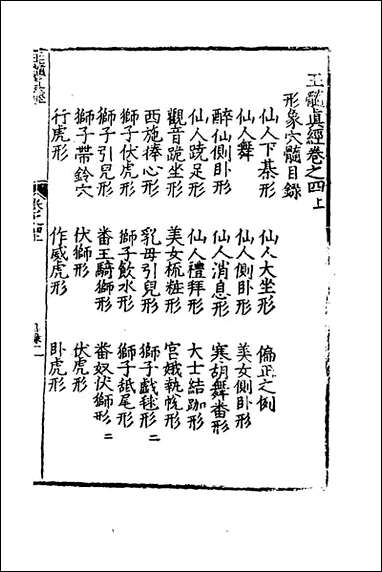 玉髓真經卷之四上
形象穴髓目錄
仙人下棊形 仙人大坐形 偏正之例
仙人舞 仙人側卧形 美女側卧形
醉仙側卧形 仙人消息形 寒胡舞番形
仙人跣足形 仙人禮拜形 大士結跏形
觀音跪坐形 美女梳粧形 宮娥執帨形
西施捧心形 乳母引兒形 獅子戲毬形二
獅子伏虎形 獅子飲水形 獅子舐尾形
獅子引兒形 番王騎獅形 番奴伏獅形二
獅子帶鈴穴 伏獅形 伏虎形
行虎形 作威虎形 卧虎形